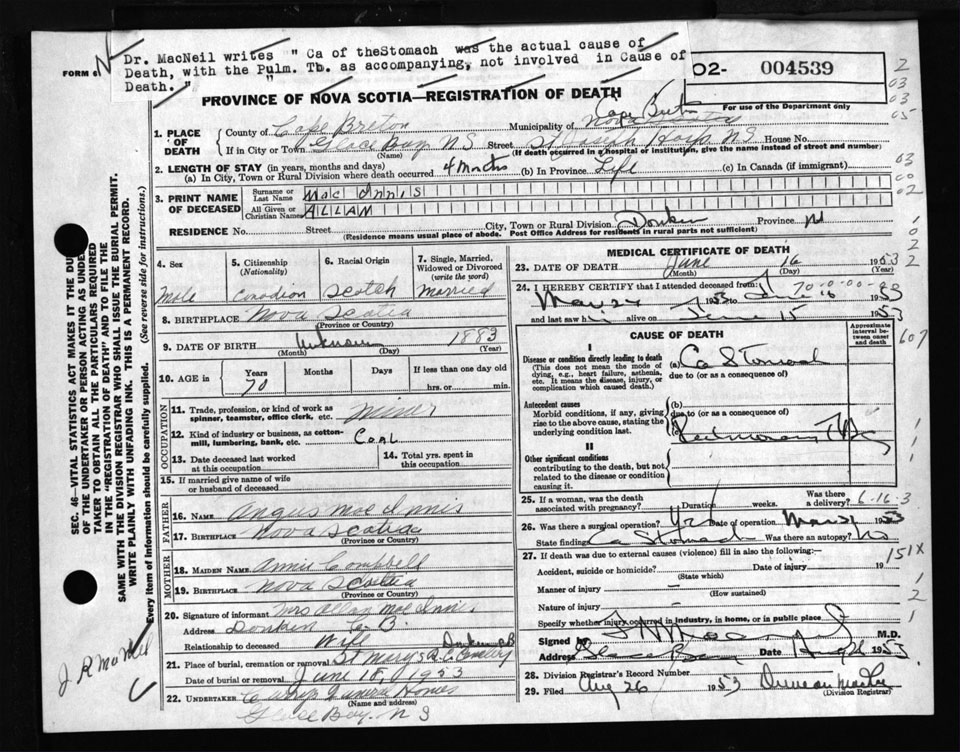 Dr. MacNeil writes " Ca of theStomach was the actual cause of
Death, with the Pulm. Tb. as accompanying, not involved in Cause of
Death. "
FORM 6
O2- 004539
PROVINCE OF NOVA SCOTIA—REGISTRATION OF DEATH
For use of the Department only
1. PLACE OF DEATH
County of Cape Breton Municipality of Cape Breton
If in City or Town Glace Bay N S Street St Hosp. N S House No.
(Name) (If death occurred in a hospital or institution, give the name instead of street and number)
2. LENGTH OF STAY (in years, months and days)
(a) In City, Town or Rural Division where death occurred 4 Months (b) In Province Life (c) In Canada (if immigrant)
3. PRINT NAME OF DECEASED
Surname or Last Name Mac Innis
All Given or Christian Names ALLAN
RESIDENCE No. Street City, Town or Rural Division Donkin Province
(Residence means usual place of abode. Post Office Address for residents in rural parts not sufficient)
4. Sex Male
5. Citizenship (Nationality) Canadian
6. Racial Origin Scotch
7. Single, Married, Widowed or Divorced (write the word) Married
8. BIRTHPLACE Nova Scotia
(Province or Country)
9. DATE OF BIRTH Unknown 1883
(Month) (Day) (Year)
10. AGE in Years 70 Months Days If less than one day old hrs. or min.
OCCUPATION
11. Trade, profession, or kind of work as spinner, teamster, office clerk, etc. Miner
12. Kind of industry or business, as cotton-mill, lumbering, bank, etc. Coal
13. Date deceased last worked at this occupation
14. Total yrs. spent in this occupation
15. If married give name of wife or husband of deceased
FATHER
16. NAME Angus Mac Innis
17. BIRTHPLACE Nova Scotia
(Province or Country)
MOTHER
18. MAIDEN NAME Annie Campbell
19. BIRTHPLACE Nova Scotia
(Province or Country)
20. Signature of informant Mrs Allan Mac Innis
Address Donkin C.B.
Relationship to deceased Wife
21. Place of burial, cremation or removal St Marys R.C. Donkin C B
Date of burial or removal June 18, 1953
22. UNDERTAKER Funeral Home
(Name and address)
Glace Bay N S
MEDICAL CERTIFICATE OF DEATH
23. DATE OF DEATH June 16 1953
(Month) (Day) (Year)
24. I HEREBY CERTIFY that I attended deceased from:
May 24 1953 to June 16 1953
and last saw h i alive on June 15 1953
CAUSE OF DEATH
Approximate interval between onset and death
I
Disease or condition directly leading to death
(This does not mean the mode of dying, e.g., heart failure, asthenia, etc. It means the disease, injury, or complication which caused death.)
(a) Ca Stomach
due to (or as a consequence of)
Antecedent causes
Morbid conditions, if any, giving rise to the above cause, stating the underlying condition last.
(b)
due to (or as a consequence of)
(c)
II
Other significant conditions
contributing to the death, but not related to the disease or condition causing it.
25. If a woman, was the death associated with pregnancy? Duration weeks. Was there a delivery?
6-16-3
26. Was there a surgical operation? Yes Date of operation May 1953
State findings Ca Stomach Was there an autopsy? No
27. If death was due to external causes (violence) fill in also the following:—
Accident, suicide or homicide? Date of injury 19
(State which)
Manner of injury
(How sustained)
Nature of injury
Specify whether injury occurred in industry, in home, or in public place
Signed by M.D.
Address Glace Bay Date Aug 26 1953
28. Division Registrar's Record Number
29. Filed Aug 26 1953
(Division Registrar)
151X
SEC. 46—VITAL STATISTICS ACT MAKES IT THE DU
OF THE UNDERTAKER OR PERSON ACTING AS UNDE
TAKER TO OBTAIN ALL THE PARTICULARS REQUIRED
IN THE "REGISTRATION OF DEATH" AND TO FILE THE
SAME WITH THE DIVISION REGISTRAR WHO SHALL ISSUE THE BURIAL PERMIT.
WRITE PLAINLY WITH UNFADING INK. THIS IS A PERMANENT RECORD.
Every item of information should be carefully supplied. (See reverse side for instructions.)